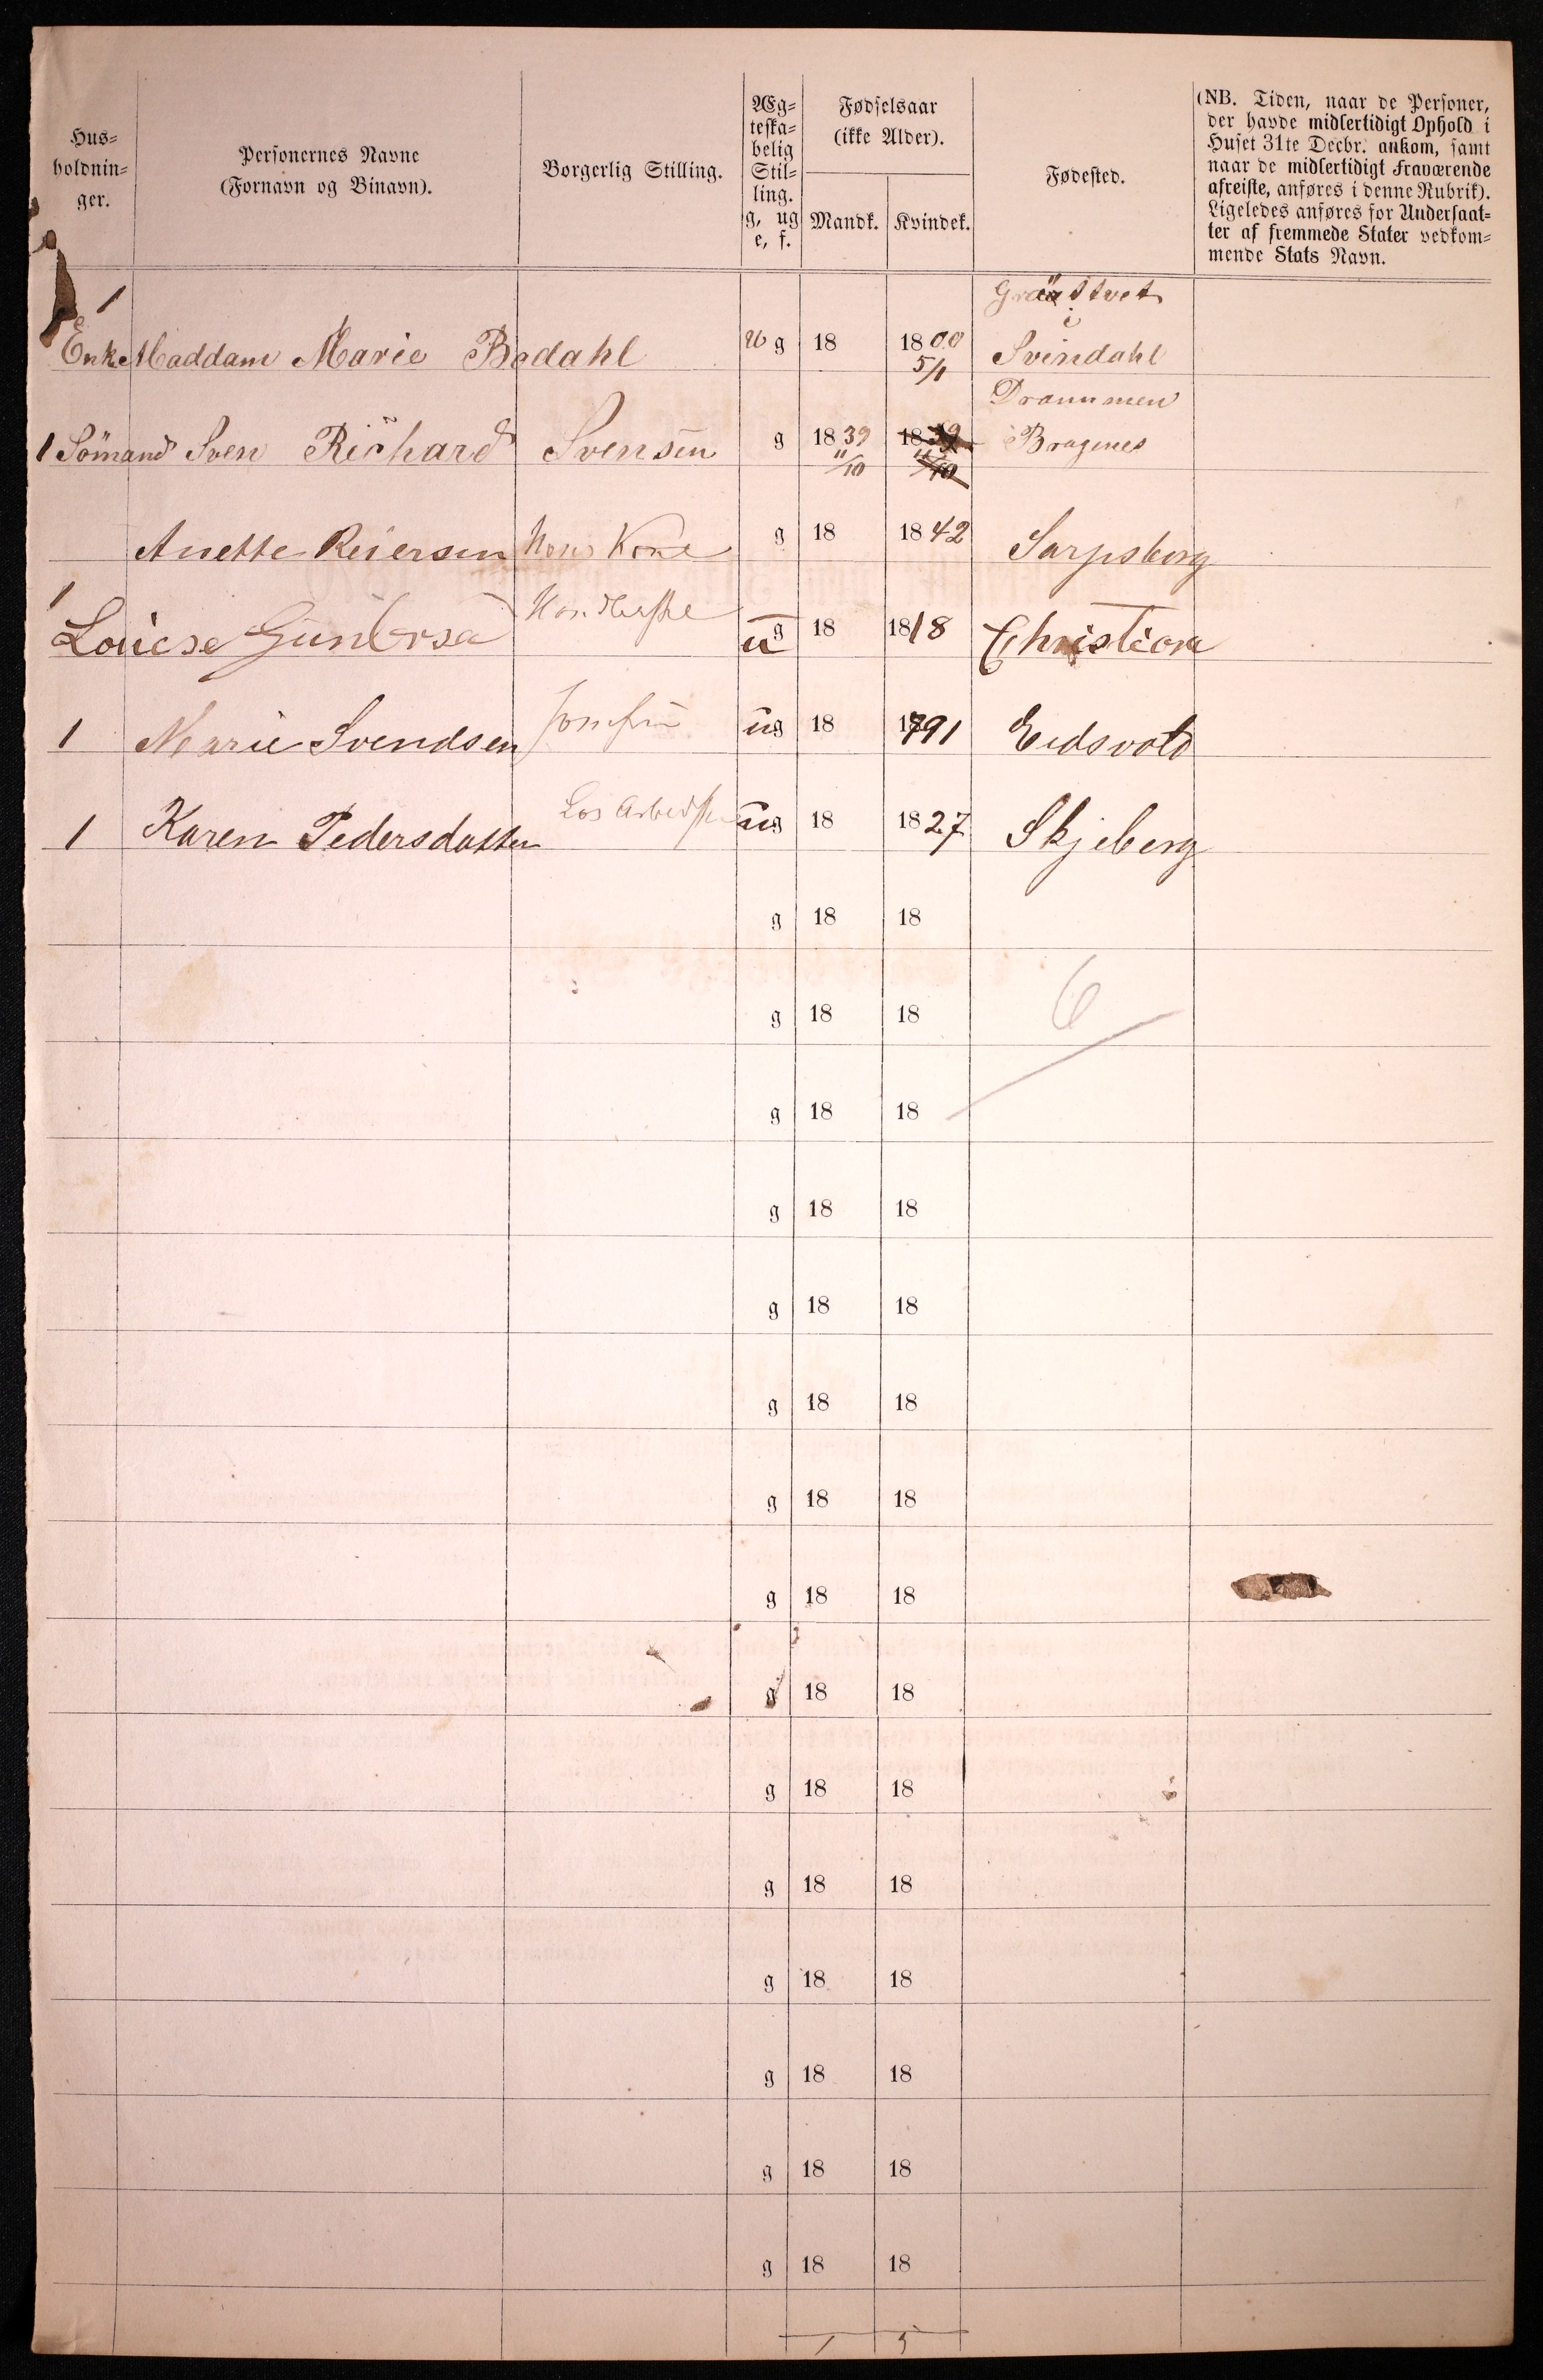 Hus-
holdnin-
ger.
Personernes Navne
(Fornavn og Binavn).
Borgerlig Stilling.
Æg-
teska-
belig
Stil-
ling.
g, ug
e, f.
Fødselsaar
(ikke Alder).
Mandk.
Kvindek.
Fødested.
(NB. Tiden, naar de Personer,
der havde midlertidigt Ophold i
Huset 31te Decbr. ankom, samt
naar de midlertidigt Fraværende
afreiste, anføres i denne Rubrik).
Ligeledes anføres for Undersaat-
ter af fremmede Stater vedkom-
mende Stats Navn.
1
i
Enke Maddam Marie Bødahl U g 18 1800 Svindahl
5/1
Drammen
1 Sömand Sven Richard Svensen g 1839 1839 Bragenes
11/10 11/10
Anette Reiersen Hans Kone g 18 1842 Sarpsborg
1
Louiese ug 18 1818 Christian
1 Marie Svendsen Jomfru ug 18 1791 Eidsvold
1 Karen Pedersdatter Løs ug 18 1827 Skjeberg
g 18 18
g 18 18
6
g 18 18
g 18 18
g 18 18
g 18 18
g 18 18
g 18 18
g 18 18
g 18 18
g 18 18
g 18 18
g 18 18
g 18 18
g 18 18
1 5